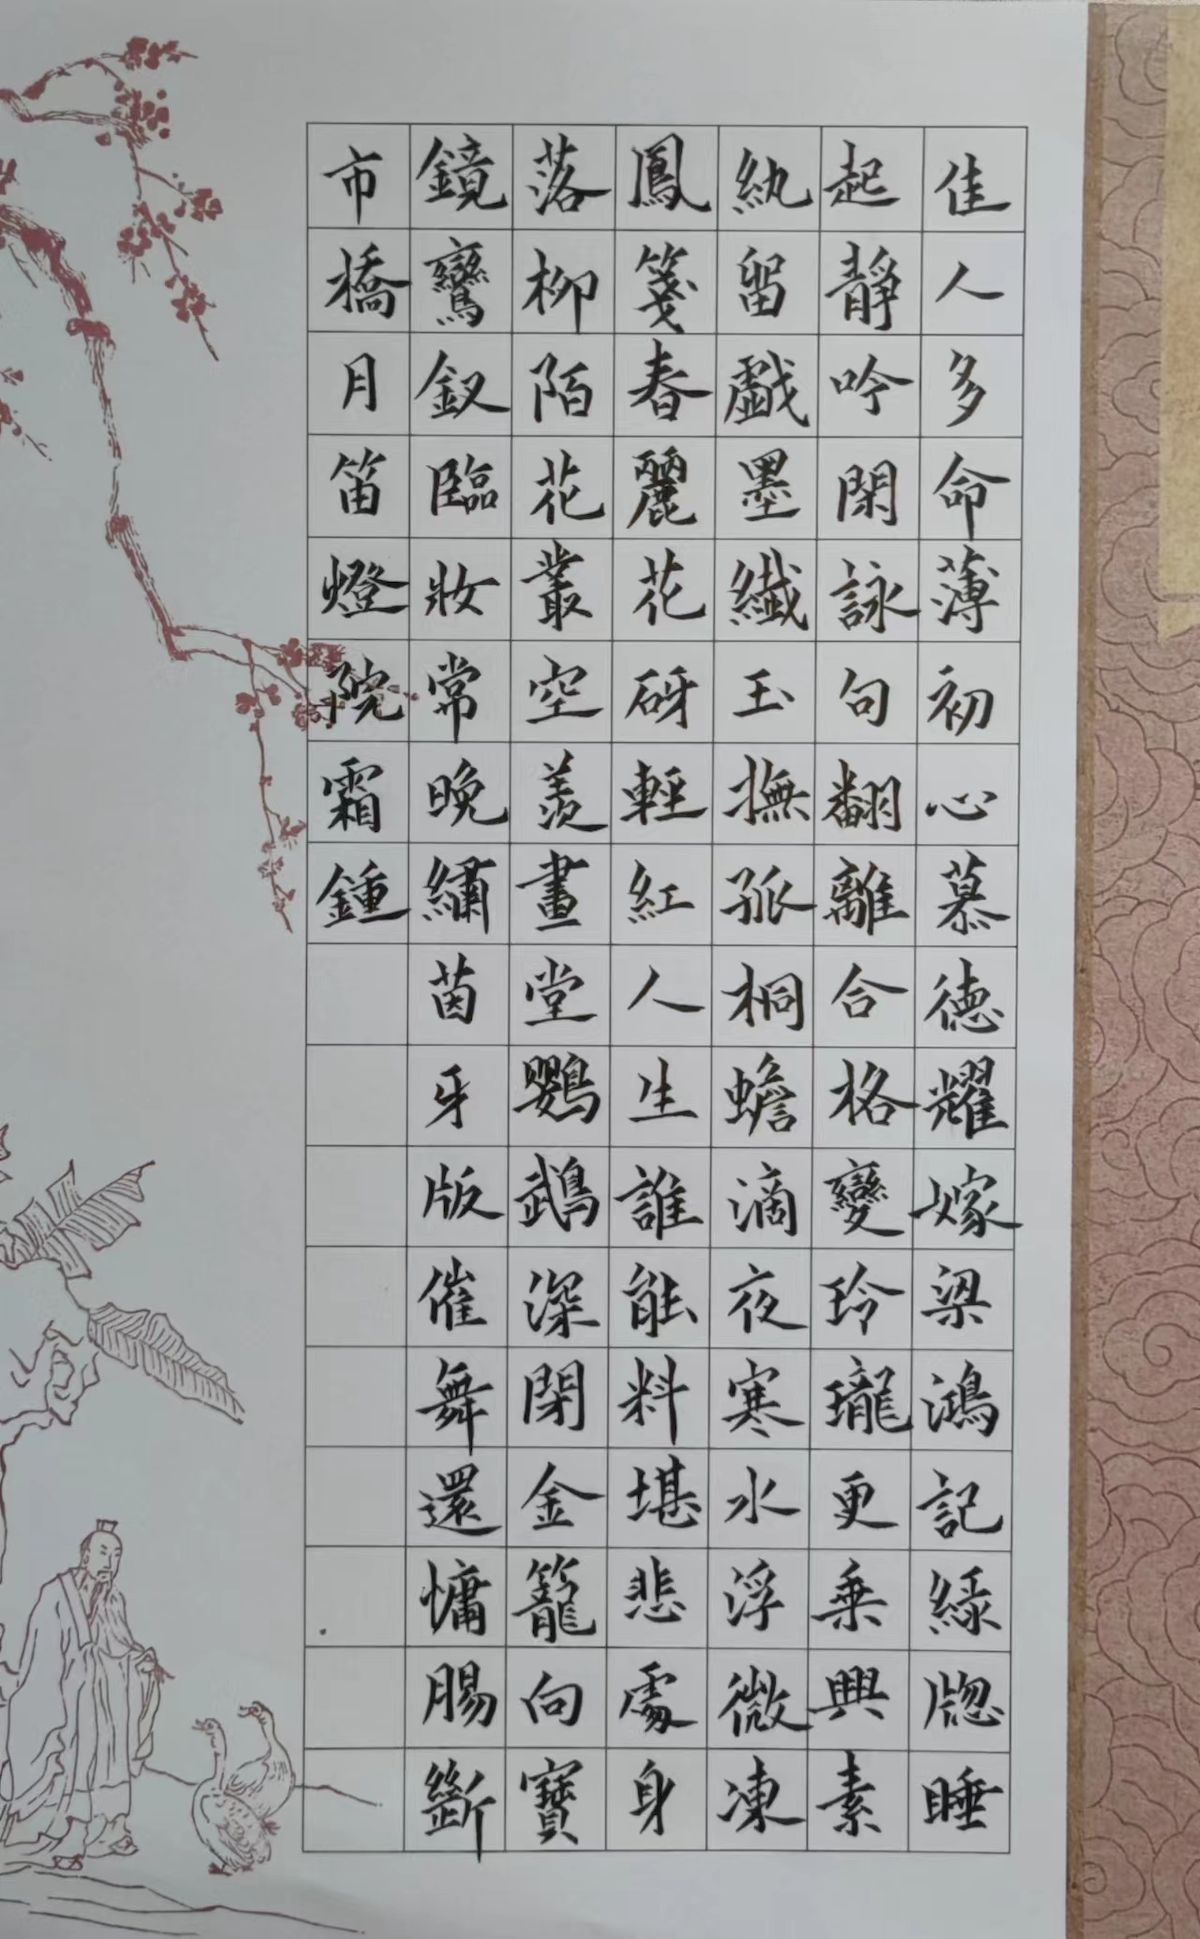 佳人多命薄初心慕德耀嫁梁鴻記綠牕睡
起靜吟閑詠句翻離合格變玲瓏更乗興素
紈留戯墨纖玉撫孤桐蟾滴夜寒水浮微凍
鳳箋春麗花砑輕紅人生誰能料堪悲處身
落柳陌花叢空羡畫堂鸚鵡深閉金籠向寶
鏡鸞釵臨妝常晚繡茵牙版催舞還慵腸斷
市橋月笛燈院霜鍾